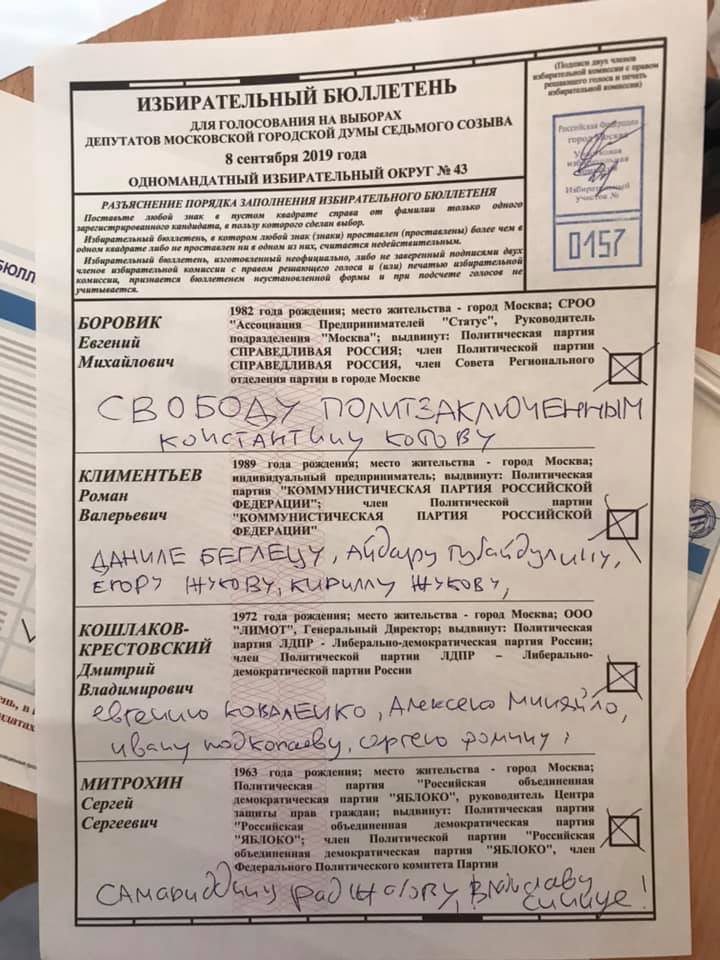 ИЗБИРАТЕЛЬНЫЙ БЮЛЛЕТЕНЬ
ДЛЯ ГОЛОСОВАНИЯ НА ВЫБОРАХ
ДЕПУТАТОВ МОСКОВСКОЙ ГОРОДСКОЙ ДУМЫ СЕДЬМОГО СОЗЫВА
8 сентября 2019 года
ОДНОМАНДАТНЫЙ ИЗБИРАТЕЛЬНЫЙ ОКРУГ № 43
(Подписи двух членов
избирательной комиссии с правом
решающего голоса и печать
избирательной комиссии)
Российская Федерация
город Москва
Участковая
избирательная
комиссия
Избирательный
участок №
0157
РАЗЪЯСНЕНИЕ ПОРЯДКА ЗАПОЛНЕНИЯ ИЗБИРАТЕЛЬНОГО БЮЛЛЕТЕНЯ
Поставьте любой знак в пустом квадрате справа от фамилии только одного
зарегистрированного кандидата, в пользу которого сделан выбор.
Избирательный бюллетень, в котором любой знак (знаки) проставлен (проставлены) более чем в
одном квадрате либо не проставлен ни в одном из них, считается недействительным.
Избирательный бюллетень, изготовленный неофициально, либо не заверенный подписями двух
членов избирательной комиссии с правом решающего голоса и (или) печатью избирательной
комиссии, признается бюллетенем неустановленной формы и при подсчете голосов не
учитывается.
БОРОВИК
Евгений
Михайлович
1982 года рождения; место жительства - город Москва; СРОО
"Ассоциация Предпринимателей "Статус", Руководитель
подразделения "Москва"; выдвинут: Политическая партия
СПРАВЕДЛИВАЯ РОССИЯ; член Политической партии
СПРАВЕДЛИВАЯ РОССИЯ, член Совета Регионального
отделения партии в городе Москве
СВОБОДУ ПОЛИТЗАКЛЮЧЕННЫМ
КОНСТАНТИНУ КОТОВУ
КЛИМЕНТЬЕВ
Роман
Валерьевич
1989 года рождения; место жительства - город Москва;
индивидуальный предприниматель; выдвинут: Политическая
партия "КОММУНИСТИЧЕСКАЯ ПАРТИЯ РОССИЙСКОЙ
ФЕДЕРАЦИИ"; член Политической партии
"КОММУНИСТИЧЕСКАЯ ПАРТИЯ РОССИЙСКОЙ
ФЕДЕРАЦИИ"
ДАНИЛЕ БЕГЛЕЦУ, Айдару Губайдулину,
ЕГОРУ ЖУКОВУ, КИРИЛЛУ ЖУКОВУ,
КОШЛАКОВ-
КРЕСТОВСКИЙ
Дмитрий
Владимирович
1972 года рождения; место жительства - город Москва; ООО
"ЛИМОТ", Генеральный Директор; выдвинут: Политическая
партия ЛДПР - Либерально-демократическая партия России;
член Политической партии ЛДПР – Либерально-
демократической партии России
Евгению Коваленко, Алексею Миняйло,
Ивану Подкопаеву, Сергею Фомину,
МИТРОХИН
Сергей
Сергеевич
1963 года рождения; место жительства - город Москва;
Политическая партия "Российская объединенная
демократическая партия "ЯБЛОКО", руководитель Центра
защиты прав граждан; выдвинут: Политическая партия
"Российская объединенная демократическая партия
"ЯБЛОКО"; член Политической партии "Российская
объединенная демократическая партия "ЯБЛОКО", член
Федерального Политического комитета Партии
САМАРИДДИНУ Раджабову, Владиславу
Синице!